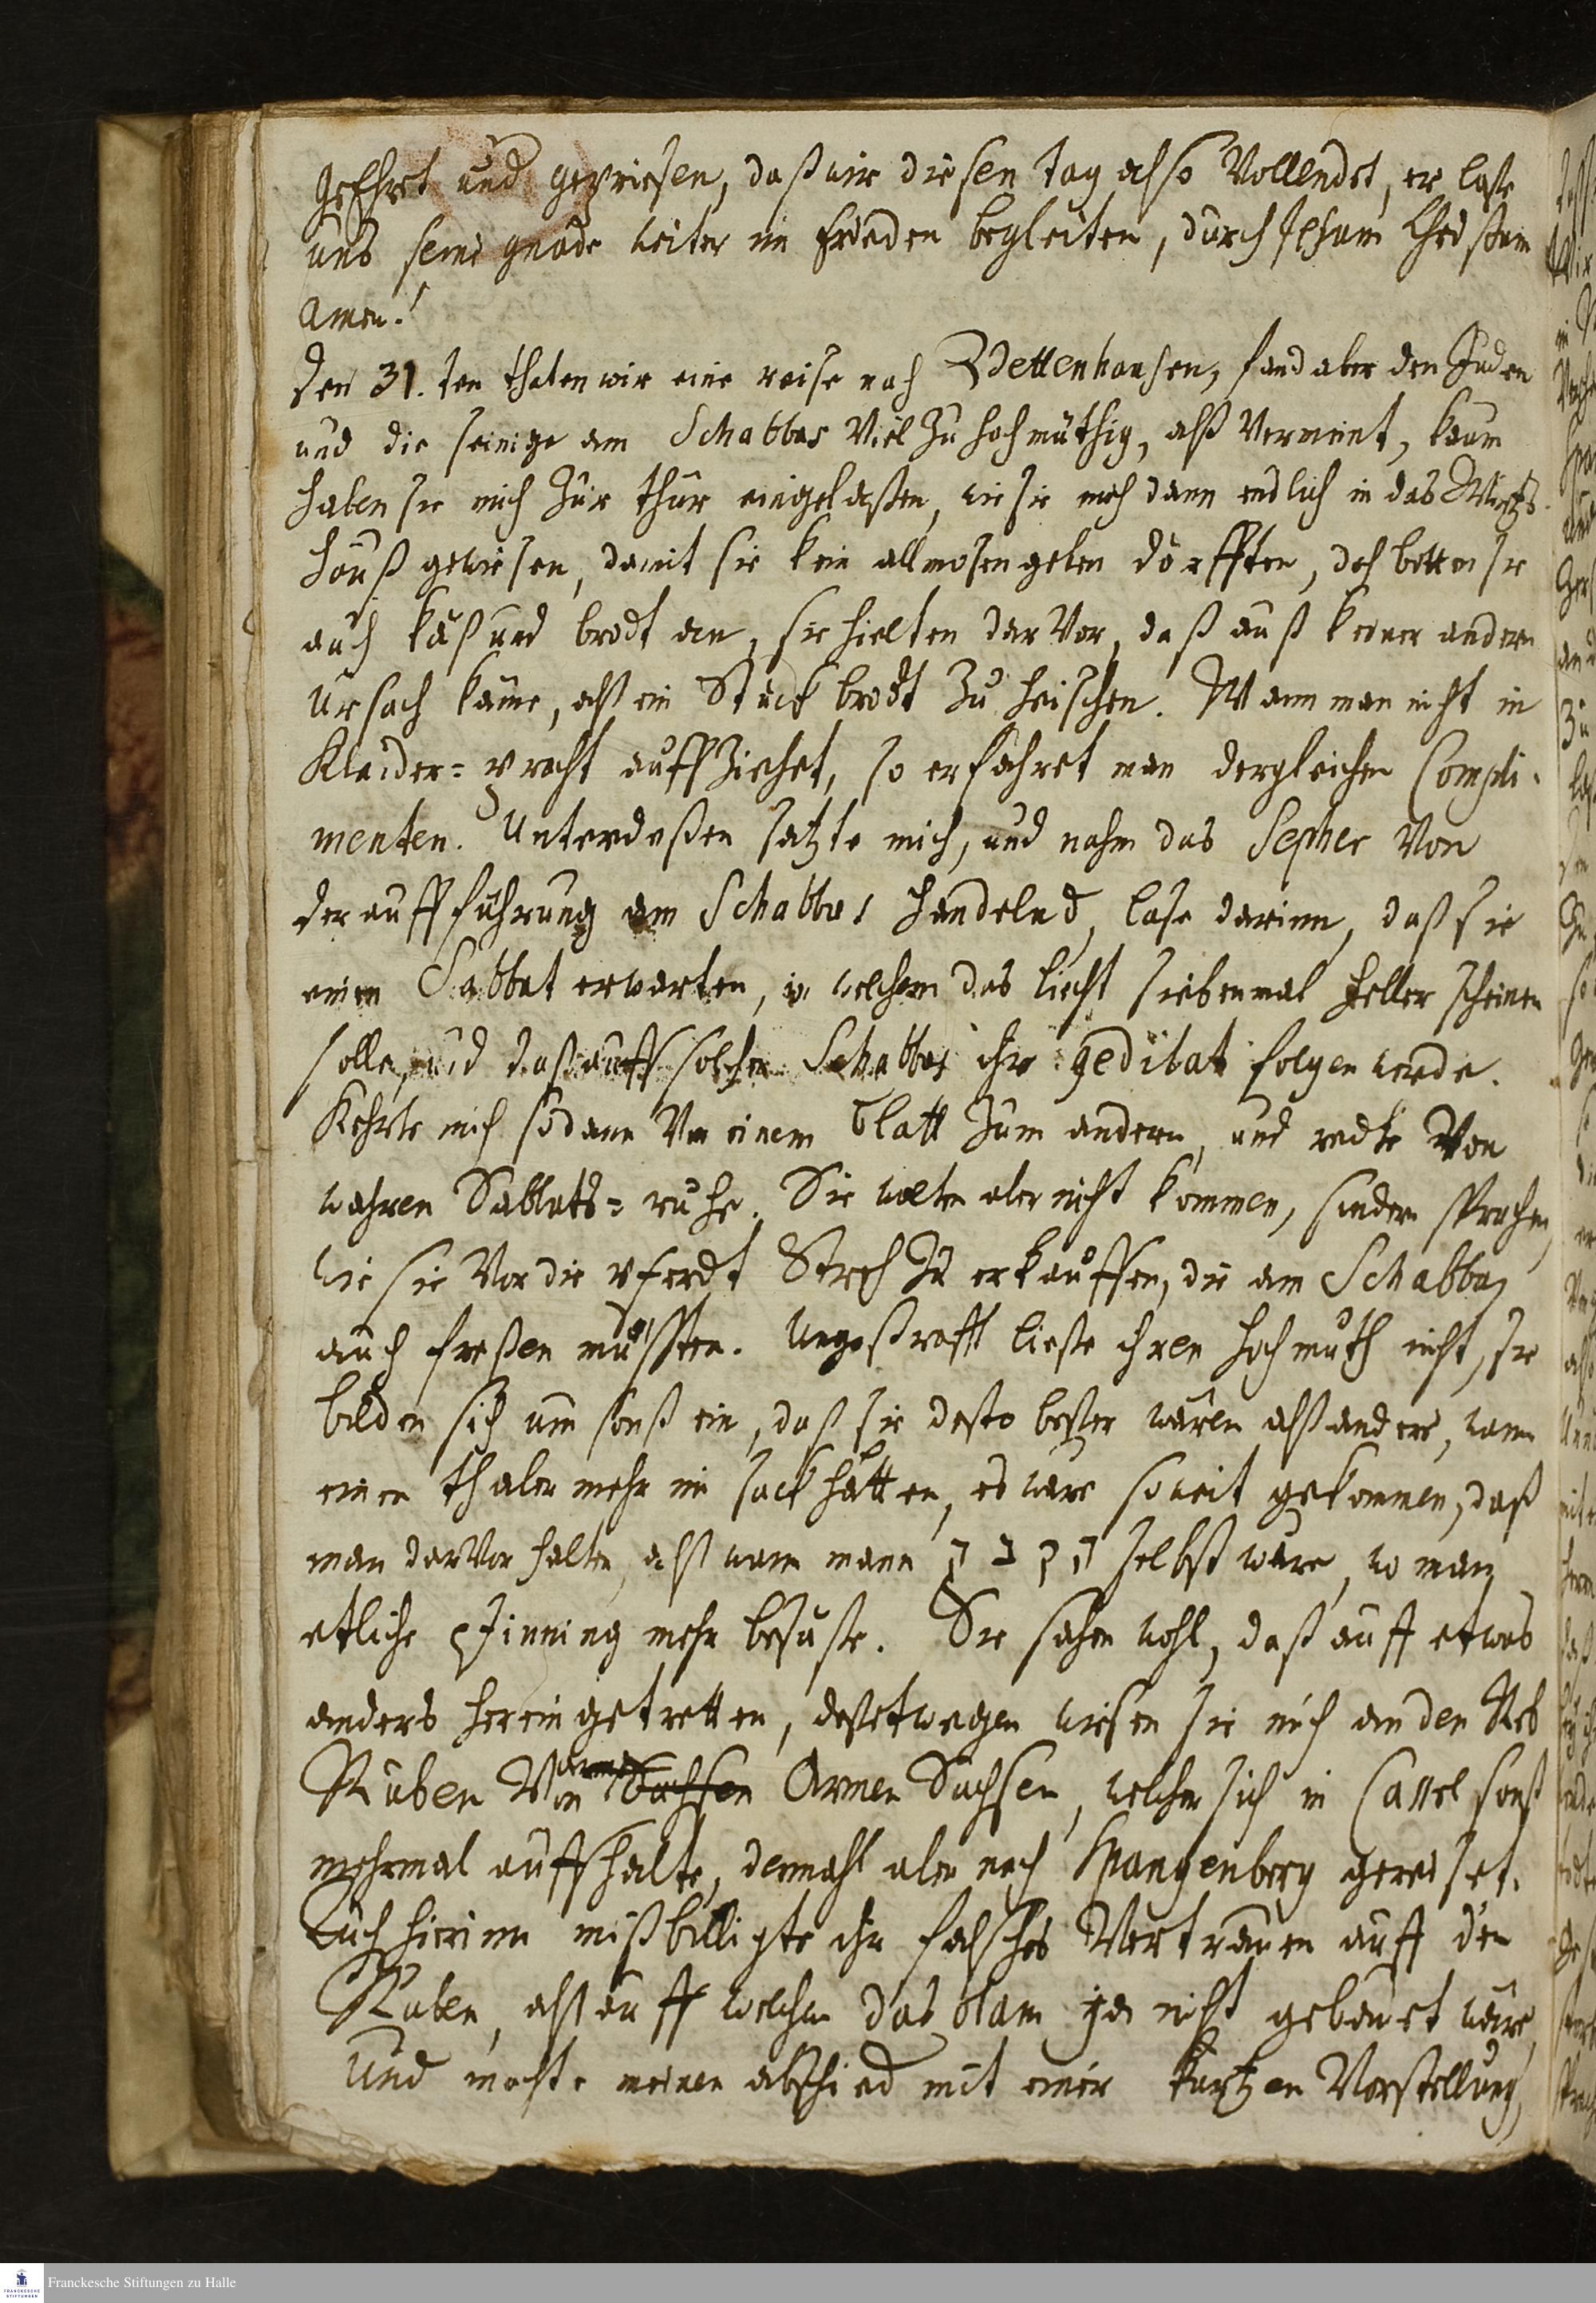 geEhrt und gepriesen, daß wir diesen tag also Vollendet, er laße
uns seine gnade weiter im frieden begleiten, durch Jesum Christum
amen!
Den 31. ten thaten wir eine reise nach Bettenhausen, fand aber den Juden
und die seinige am Schabbas Viel zu hochmüthig, alß Vermeint, kaum
haben sie mich zur thür eingelaßen, wie sie mich dann endlich in das Wirths
hauß gewiesen, damit sie kein allmosen geben dörfften, doch botten sie
auch käß und brodt an, sie hielten darVor, daß auß keiner andern
Ursach käme, alß ein Stück brodt zu heischen. Wann man nicht in
Kleider= pracht auffziehet, so erfahret man dergleichen Compli-
menten. Unterdeßen satzte mich, und nahm das Sepher Von
der aufführung am Schabbas handelnd, lase darinn, daß sie
einen Sabbat erwarten, in welchem das liecht siebenmal heller scheinen
solle, und daß auff solchen Schabbas ihre gedibat folgen werde.
Kehrte mich sodann Von einem blatt zum andern, und redte Von
wahren Sabbats= ruhe. Sie wolten aber nicht kommen, sondern sprachen,
wie sie Vor die pferdt Stroh zu erkauffen, die am Schabbas
auch freßen müssten. Ungestrafft ließe ihren hochmuth nicht, sie
bilden sich um sonst ein, daß sie desto beßer wären alß andere, wann
einen thaler mehr im sack hätten, es wäre so weit gekommen, daß
man darVor halten, alß wann mann selbst wäre, wo man
etliche pfinning mehr besäße. Sie sahen wohl, daß auff etwas
anders hereingetretten, deßetwegen wiesen sie mich an den Reb
Ruben Von Sachsen Armen Sachsen, welcher sich in Cassel sonst
mehrmal auffhalte, dermahl aber nach Spangenberg gereiset.
Auch hierinn mißbilligte ihr falsches Vertrauen auff den
Ruben, alß auff welchen das olam ja nicht gebauet wäre,
Und machte meinen abschied mit einer kurtzen Vorstellung,
Franckesche Stiftungen zu Halle